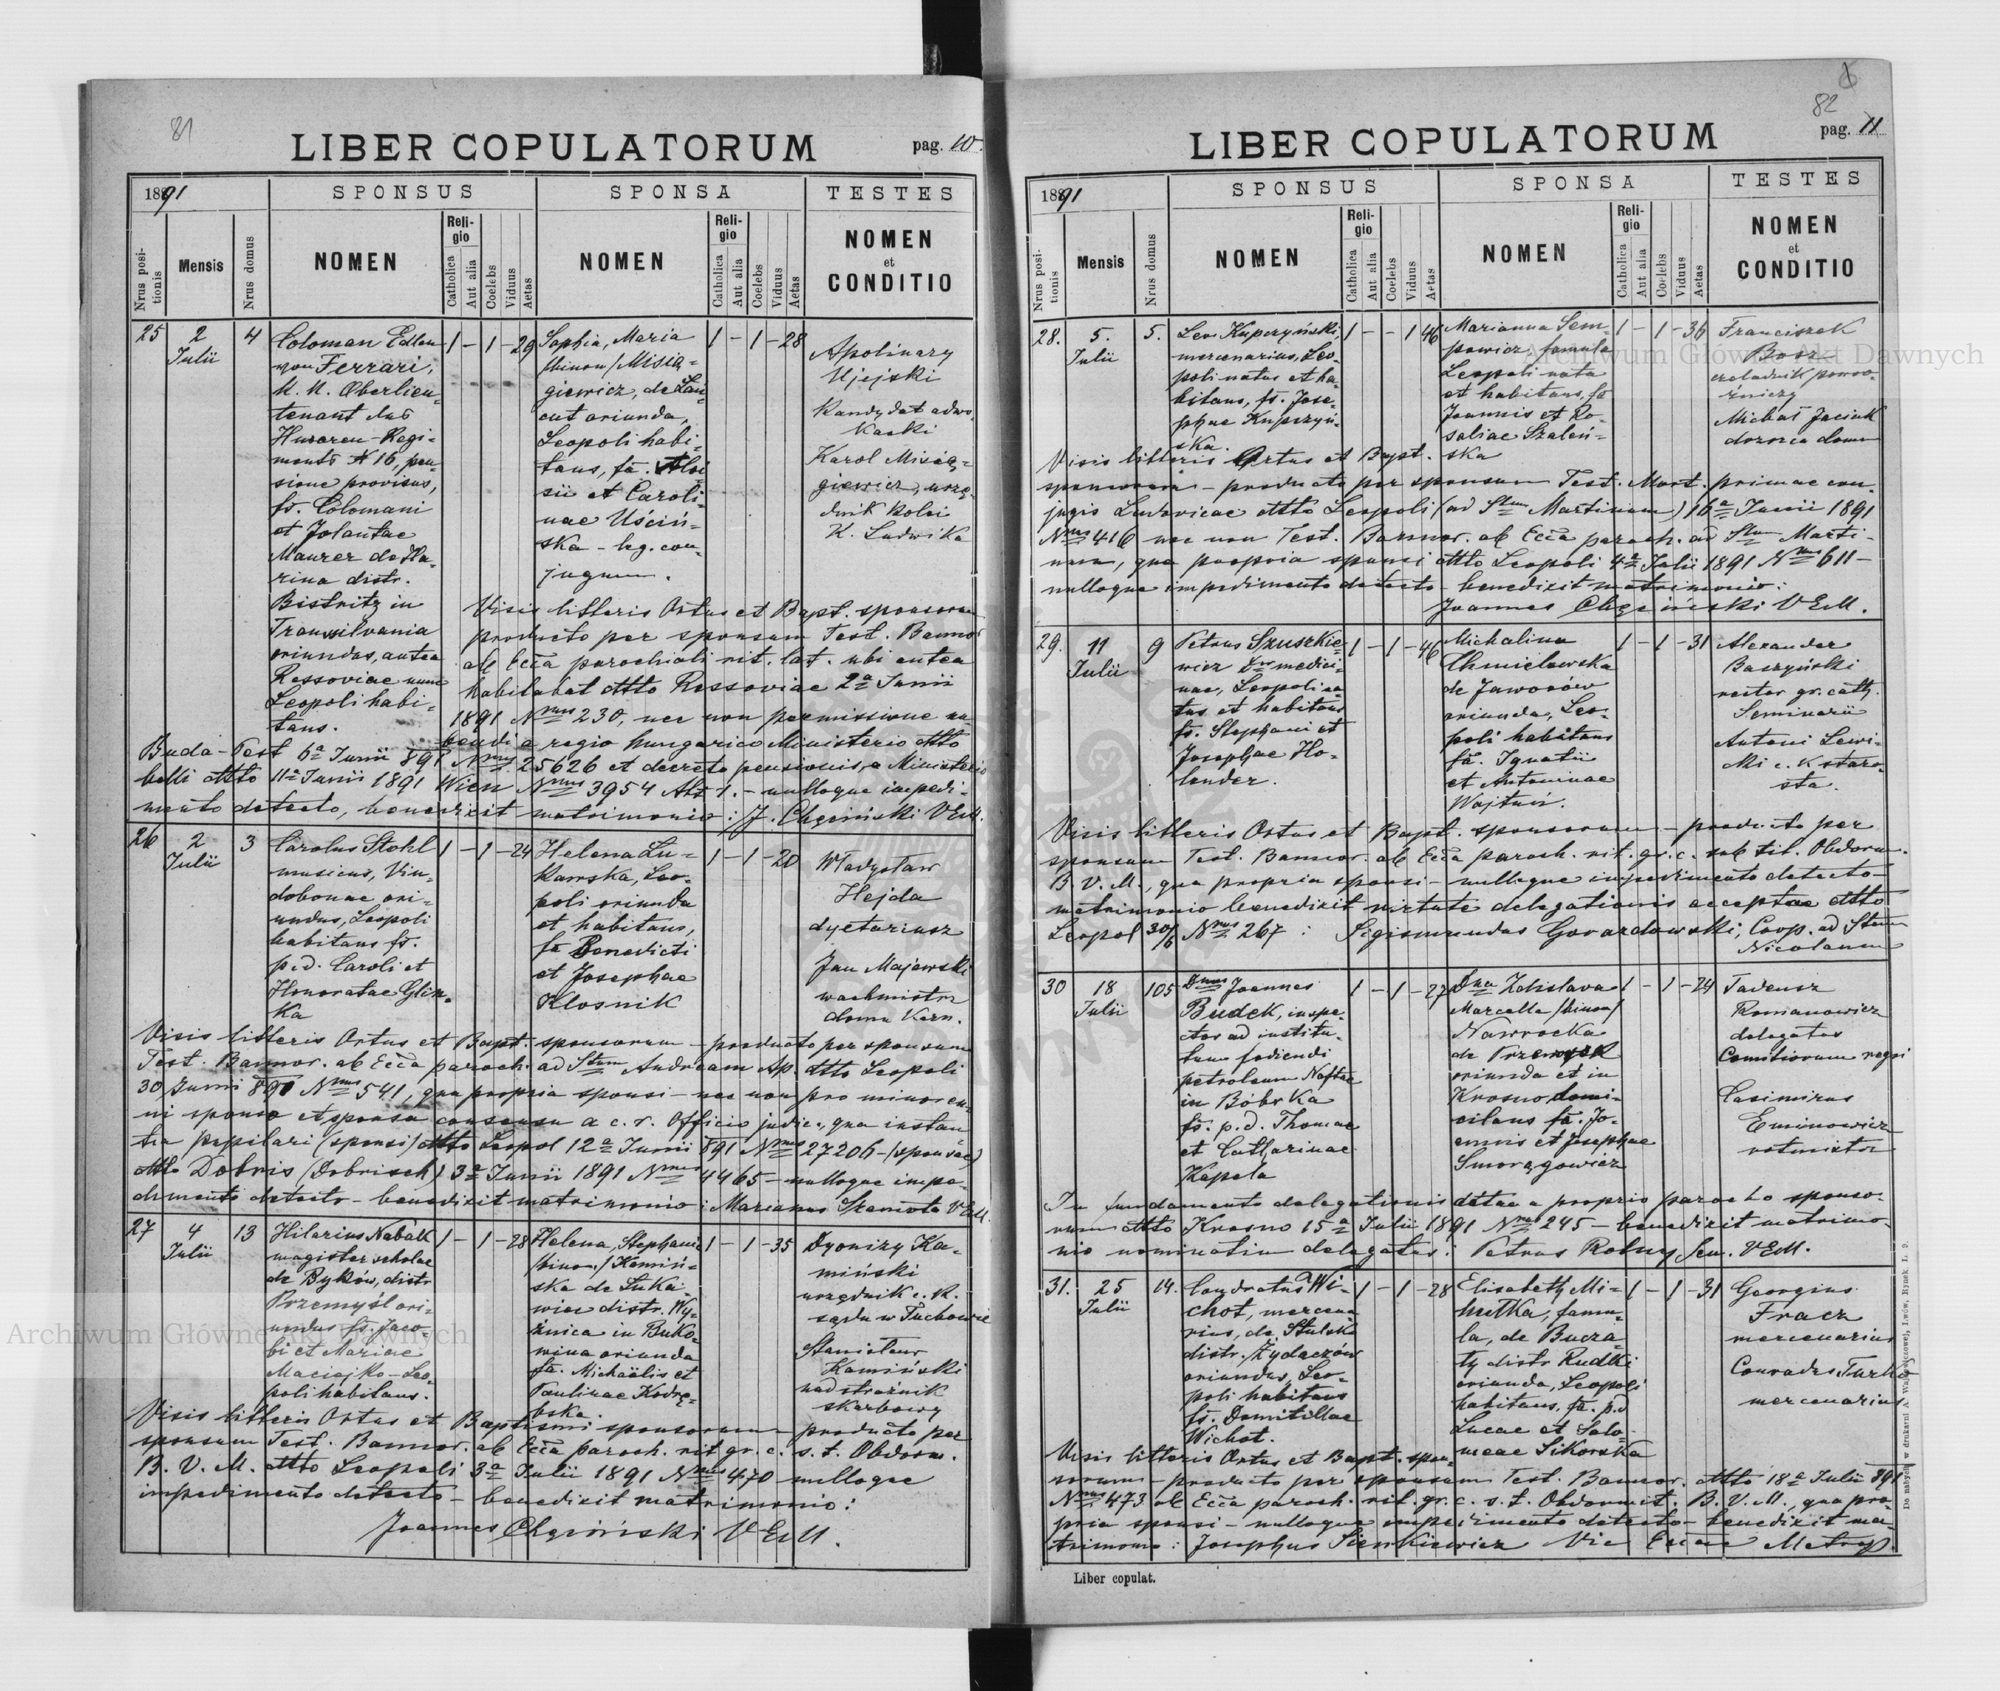 81
LIBER COPULATORUM pag. 10.
1891 SPONSUS SPONSA TESTES
Nrus positionis Mensis Nrus domus NOMEN Religio Catholica Aut alia Coelebs Viduus Aetas NOMEN Religio Catholica Aut alia Coelebs Viduus Aetas NOMEN et CONDITIO
25 2 Julii 4
Coloman Edlen
von Ferrari,
K. K. Oberlieu-
tenant des
Husaren-Regi-
ments N 16, pen-
sione provisus,
fs. Colomani
et Jolantae
Maurer de Ha-
rina distr.
Bistritz in
Transilvania
oriundus, antea
Rossoviae nunc
Leopoli habi-
tans.
1 - 1 - 29
Sophia, Maria
/binom/ Misią-
giewicz, de Łań-
cut oriunda,
Leopoli habi-
tans, fa. Aloi-
sii et Caroli-
nae Uściń-
ska - leg. con-
jugum.
1 - 1 - 28
Apolinary
Ujejski
Kandydat adwo-
kacki
Karol Misią-
giewicz, urzę-
dnik kolei
K. Ludwika
Visis litteris Ortus et Bapt. sponsorum
producto per sponsum Test. Bannor.
ab Ecća parochiali rit. lat. ubi antea
habitabat ddto Rossoviae 2a Junii
1891 Nrus 230, nec non permissione nu-
bendi a regio hungarico Ministerio ddto
Buda-Pest 6a Junii 891 Nrus 25626 et decreto pensionis a Ministerio
belli ddto 11a Junii 1891 Wien Nrus 3954 Abt 1. - nulloque impedi-
mento detecto, benedixit matrimonio: J. Chęciński VEM.
26 2 Julii 3
Carolus Stohl
musicus, Vin-
dobonae ori-
undus, Leopoli
habitans fs.
p.d. Caroli et
Honoratae Glin-
ka
1 - 1 - 24
Helena Łu-
kawska, Leo-
poli oriunda
et habitans,
fa Benedicti
et Josephae
Klosnik
1 - 1 - 20
Władysław
Hejda
dyetariusz
Jan Majewski
wachmistrz
domu karn.
Visis litteris Ortus et Bapt. sponsorum - producto per sponsum
Test. Bannor. ab Ecća paroch. ad Stum Andream Ap. ddto Leopoli
30 Junii 891 Nrus 541, qua propria sponsi - nec non pro minoren-
ni sponso et sponsa consensu a c. r. Officio judic., qua instan-
tia pupilari (sponsi) ddto Leopol 12a Junii 891 Nrus 27206 - (sponsae)
ddto Dobris (Dobrisch) 3a Junii 1891 Nrus 4465 - nulloque impe-
dimento detecto - benedixit matrimonio: Marianus Szamota VEM.
27 4 Julii 13
Hilarius Nabak
magister scholae
de Byków, distr.
Przemyśl ori-
undus fs. Jaco-
bi et Mariae
Maciejko - Leo-
poli habitans.
1 - 1 - 28
Helena, Stephanie
/binom./ Kamiń-
ska de Łuka
wiec distr. Wy-
żnica in Buko-
wina oriunda
fa. Michaëlis et
Paulinae Kodrę-
bska.
1 - 1 - 35
Dyonizy Ka-
miński
urzędnik c. k.
sądu w Tuchowie
Stanisław
Kamiński
nadstrażnik
skarbowy
Visis litteris Ortus et Baptismi sponsorum - producto per
sponsum Test. Bannor. ab Ecća paroch. rit. gr. c. s. t. Obdorm.
B. V. M. ddto Leopoli 3a Julii 1891 Nrus 470 - nulloque
impedimento detecto - benedixit matrimonio:
Joannes Chęciński VEM.
82
LIBER COPULATORUM pag. 11
1891 SPONSUS SPONSA TESTES
Nrus positionis Mensis Nrus domus NOMEN Religio Catholica Aut alia Coelebs Viduus Aetas NOMEN Religio Catholica Aut alia Coelebs Viduus Aetas NOMEN et CONDITIO
28. 5. Julii 5.
Leo Kupczyński,
mercenarius, Leo-
poli natus et ha-
bitans, fs. Jose-
phae Kupczyń-
ska.
1 - - 1 46
Marianna Sem-
powicz, famula
Leopoli nata
et habitans, fa
Joannis et Ro-
saliae Szaleń-
ska
1 - 1 - 36
Franciszek
czeladnik powro-
źniczy
Michał Jaciuk
dozorca domu
Visis litteris Ortus et Bapt.
sponsorum - producto per sponsum Test. Mort. primae con-
jugis Ludovicae ddto Leopoli (ad Stum Martinum) 16a Junii 1891
Nrus 416 nec non Test. Bannor. ab Ecća paroch. ad Stum Marti-
num, qua propria sponsi ddto Leopoli 4a Julii 1891 Nrus 611 -
nulloque impedimento detecto - benedixit matrimonio:
Joannes Chęciński VEM.
29. 11 Julii 9
Petrus Szuszkie-
wicz Dr medici-
nae, Leopoli na-
tus et habitans
fs. Stephani et
Josephae Ho-
lender.
1 - 1 - 46
Michalina
Chmielowska
de Jaworów
oriunda, Leo-
poli habitans
fa. Ignatii
et Antoninae
Wajtuś.
1 - 1 - 31
Alexander
Baczyński
rector gr. cath.
Seminarii
Antoni Lewi-
cki c. k staro-
sta.
Visis litteris Ortus et Bapt. sponsorum - producto per
sponsum Test. Bannor. ab Ecća paroch. rit. gr. c. sub tit. Obdorm.
B. V. M., qua propria sponsi - nulloque impedimento detecto -
matrimonio benedixit virtute delegationis acceptae ddto
Leopol 30/6 Nrus 267: Sigismundus Gorazdowski, Coop. ad Stum
Nicolaum
30 18 Julii 105
Dnus Joannes
Budek, inspe-
ctor ad institu-
tum fodiendi
petroleum Naftae
in Bóbrka
fs. p.d. Thomae
et Catharinae
Kapela
1 - 1 - 27
Dna Zdislava
Marcella /binom/
Nawrocka
de Przemysl
oriunda et in
Krosno domi-
cilans fa. Jo-
annis et Josephae
Smorągowicz
1 - 1 - 24
Tadeusz
Romanowicz
delegatus
Comitiorum regni
Casimirus
Eminowicz
rotmistrz
In fundamento delegationis datae a proprio parocho sponso-
rum ddto Krosno 15a Julii 1891 Nrus 245 - benedixit matrimo-
nio nominatim delegatus: Petrus Rolny Sen. VEM.
31. 25 Julii 14.
Condratus Wi-
chot, mercena-
rius, de Stulsko
distr. Żydaczów
oriundus, Leo-
poli habitans
fs. Domitillae
Wichot.
1 - 1 - 28
Elisabeth Mi-
hutka, famu-
la, de Bucza-
ły distr Rudki
oriunda, Leopoli
habitans, fa. p.d
Lucae et Salo-
meae Sikorska
1 - 1 - 31
Georgius
Fracz
mercenarius
Conradus Turko
mercenarius
Visis litteris Ortus et Bapt. spon-
sorum - producto per sponsum Test. Bannor. ddto 18a Julii 891
Nrus 473 ab Ecća paroch. rit. gr. c. s. t. Obdormit. B. V. M., qua pro-
pria sponsi - nulloque impedimento detecto - benedixit ma-
trimonio: Josephus Sienkiewicz Vic Ecclae Metrop.
Liber copulat.
Do nabycia w drukarni A. Wajdowiczowej, Lwów, Rynek L. 9.
Archiwum Główne Akt Dawnych
Archiwum Główne Akt Dawnych